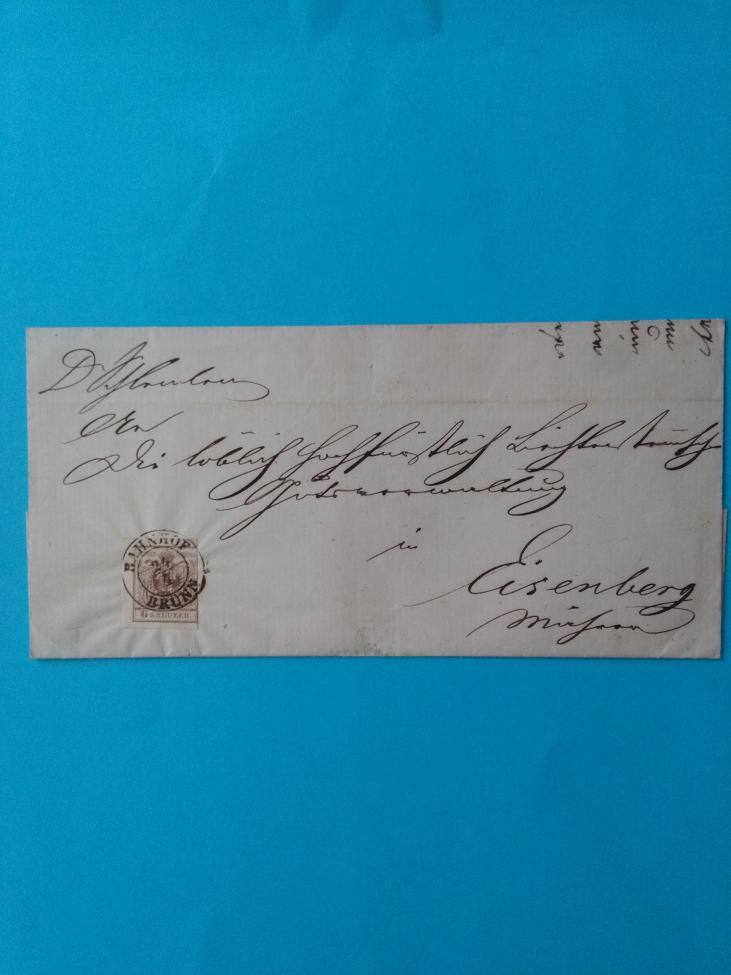 An
die löblich hochfürstlich Liechtensteinsche
Gutsverwaltung
in
Eisenberg
Mähren
BAHNHOF
BRÜNN
6 KREUZER